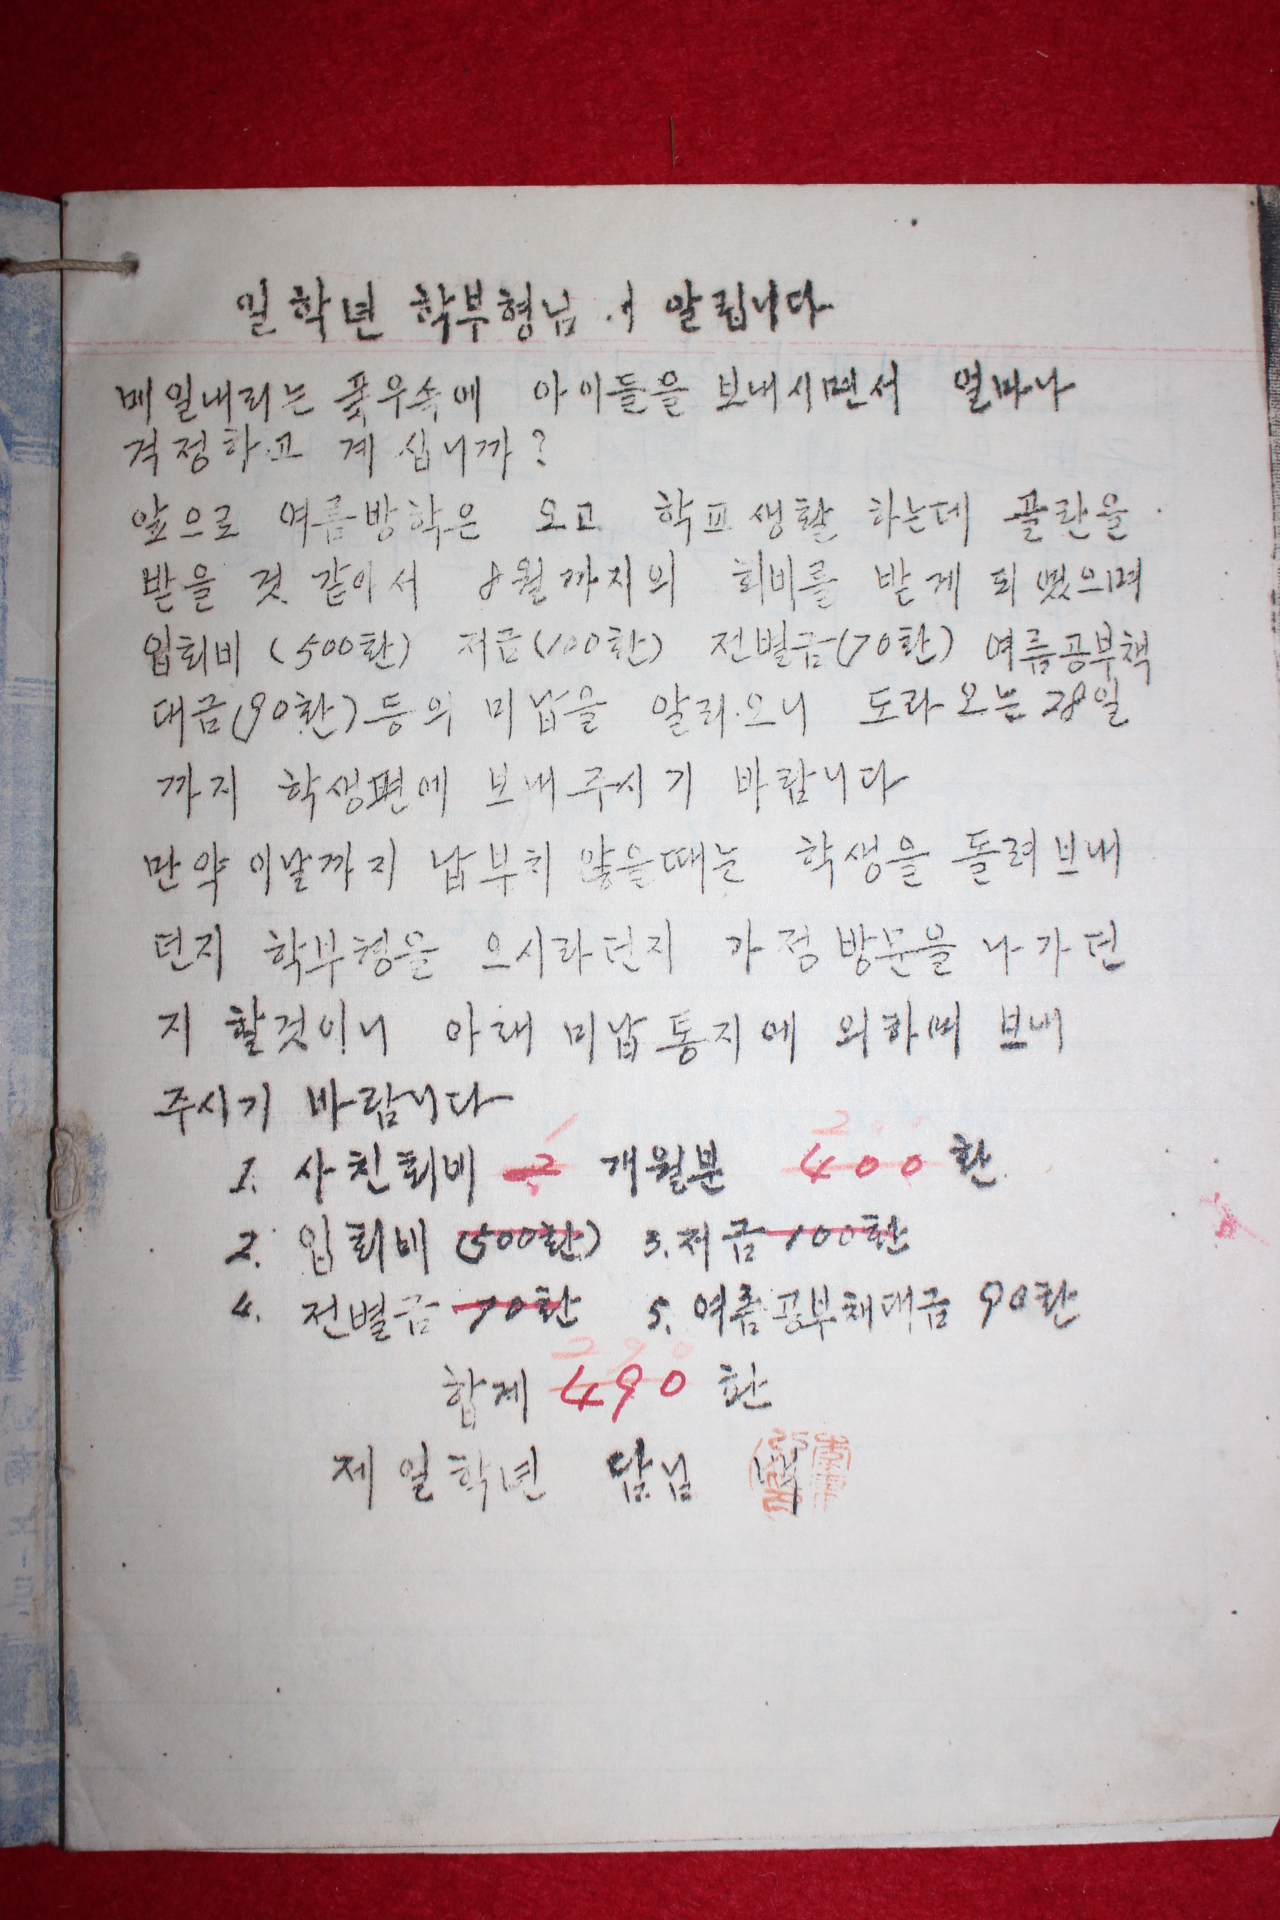 일학년 학부형님 알립니다
메일내리는 폭우속에 아이들을 보내시면서 얼마나
걱정하고 계십니까?
앞으로 여름방학은 오고 학교생활 하는데 곤란을
받을 것 같아서 8월까지의 회비를 받게 되였으며
입회비 (500환) 저금(100환) 전별금(70환) 여름공부책
대금(90환)등의 미납을 알리오니 도라오는 28일
까지 학생편에 보내주시기 바랍니다
만약 이날까지 납부치 않을때는 학생을 돌려보내
던지 학부형을 오시라던지 가정방문을 나가던
지 할것이니 아래 미납통지에 의하여 보내
주시기 바랍니다
1. 사친회비 2 1 개월분 400 200 환
2. 입회비 (500환) 3. 저금 100환
4. 전별금 70환 5. 여름공부채대금 90환
합계 490 290 환
제일학년 담님